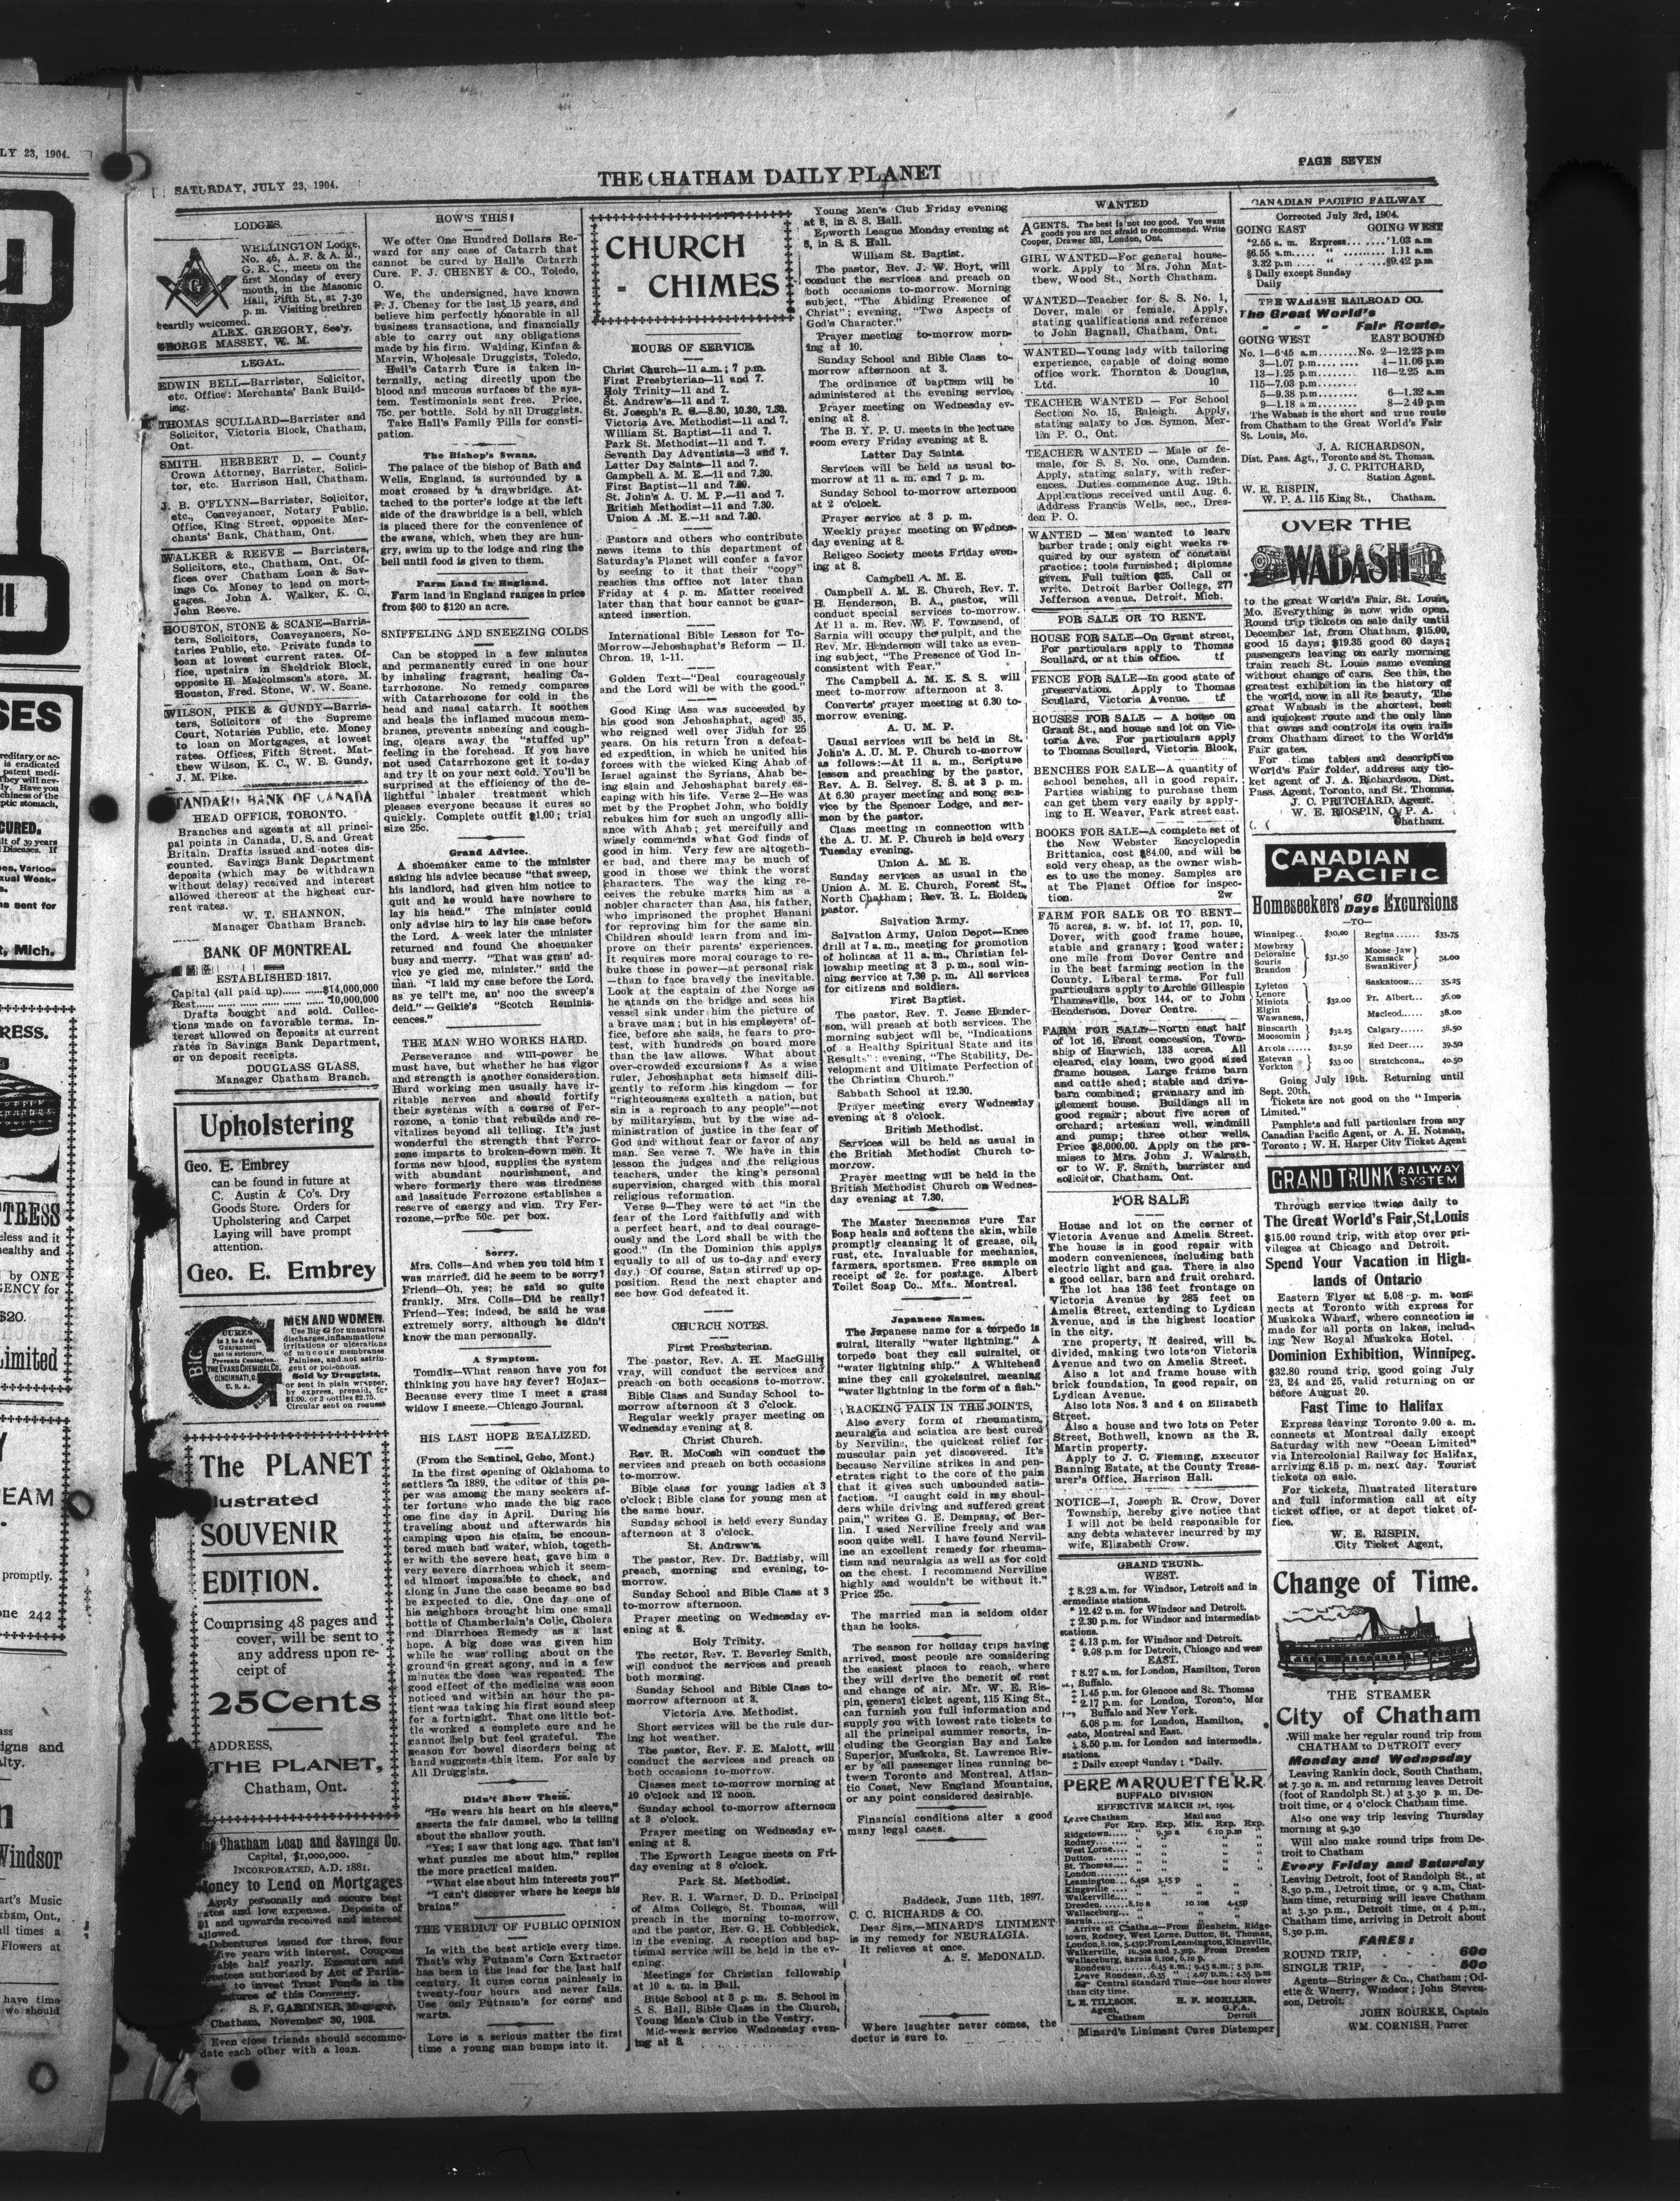 LY 23, 1904.
SATURDAY, JULY 23, 1904.
THE CHATHAM DAILY PLANET
PAGE SEVEN
LODGES.
WELLINGTON Lodge,
No. 46, A. F. & A. M.,
G. R. C., meets on the
first Monday of every
month, in the Masonic
Hall, Fifth St., at 7.30
p. m. Visiting brethren
heartily welcomed.
ALEX. GREGORY, Sec'y.
GEORGE MASSEY, W. M.
LEGAL.
EDWIN BELL—Barrister, Solicitor,
etc. Office: Merchants' Bank Build-
ing.
THOMAS SCULLARD—Barrister and
Solicitor, Victoria Block, Chatham,
Ont.
SMITH. HERBERT D. — County
Crown Attorney, Barrister, Solici-
tor, etc. Harrison Hall, Chatham.
J. B. O'FLYNN—Barrister, Solicitor,
etc., Conveyancer, Notary Public.
Office, King Street, opposite Mer-
chants' Bank, Chatham, Ont.
WALKER & REEVE — Barristers,
Solicitors, etc., Chatham, Ont. Of-
fices over Chatham Loan & Sav-
ings Co. Money to lend on mort-
gages. John A. Walker, K. C.,
John Reeve.
HOUSTON, STONE & SCANE—Barris-
ters, Solicitors, Conveyancers, No-
taries Public, etc. Private funds to
loan at lowest current rates. Of-
fice, upstairs in Sheldrick Block,
opposite H. Malcolmson's store. M.
Houston, Fred. Stone, W. W. Scane.
WILSON, PIKE & GUNDY—Barris-
ters, Solicitors of the Supreme
Court, Notaries Public, etc. Money
to loan on Mortgages, at lowest
rates. Offices, Fifth Street. Mat-
thew Wilson, K. C., W. E. Gundy,
J. M. Pike.
STANDARD BANK OF CANADA
HEAD OFFICE, TORONTO.
Branches and agents at all princi-
pal points in Canada, U.S. and Great
Britain. Drafts issued and notes dis-
counted. Savings Bank Department
deposits (which may be withdrawn
without delay) received and interest
allowed thereon at the highest cur-
rent rates.
W. T. SHANNON,
Manager Chatham Branch.
BANK OF MONTREAL
ESTABLISHED 1817.
Capital (all paid up)......$14,000,000
Rest............10,000,000
Drafts bought and sold. Collec-
tions made on favorable terms. In-
terest allowed on deposits at current
rates in Savings Bank Department,
or on deposit receipts.
DOUGLASS GLASS,
Manager Chatham Branch.
Upholstering
Geo. E. Embrey
can be found in future at
C. Austin & Co's. Dry
Goods Store. Orders for
Upholstering and Carpet
Laying will have prompt
attention.
Geo. E. Embrey
MEN AND WOMEN.
Use Big G for unnatural
discharges, inflammations
irritations or ulcerations
of mucous membranes
Painless, and not astrin-
gent or poisonous.
Sold by Druggists,
or sent in plain wrapper,
by express, prepaid, for
$1.00, or 3 bottles $2.75.
Circular sent on request
The PLANET
lustrated
SOUVENIR
EDITION.
Comprising 48 pages and
cover, will be sent to
any address upon re-
ceipt of
25Cents
ADDRESS,
THE PLANET,
Chatham, Ont.
Chatham Loan and Savings Co.
Capital, $1,000,000.
INCORPORATED, A.D. 1881.
Money to Lend on Mortgages
Apply personally and secure best
rates and low expenses. Deposits of
$1 and upwards received and interest
allowed.
Debentures issued for three, four
five years with interest. Coupons
able half yearly. Executors and
authorized by Act of Parlia-
to invest Trust Funds in the
of this Company.
S. F. GARDINER, Manager.
Chatham, November 30, 1903.
Even close friends should accommo-
date each other with a loan.
HOW'S THIS!
We offer One Hundred Dollars Re-
ward for any case of Catarrh that
cannot be cured by Hall's Catarrh
Cure. F. J. CHENEY & CO., Toledo,
O.
We, the undersigned, have known
F. J. Cheney for the last 15 years, and
believe him perfectly honorable in all
business transactions, and financially
able to carry out any obligations
made by his firm. Walding, Kinfan &
Marvin, Wholesale Druggists, Toledo,
Hall's Catarrh Cure is taken in-
ternally, acting directly upon the
blood and mucous surfaces of the sys-
tem. Testimonials sent free. Price,
75c. per bottle. Sold by all Druggists.
Take Hall's Family Pills for consti-
pation.
The Bishop's Swans.
The palace of the bishop of Bath and
Wells, England, is surrounded by a
moat crossed by a drawbridge. At-
tached to the porter's lodge at the left
side of the drawbridge is a bell, which
is placed there for the convenience of
the swans, which, when they are hun-
gry, swim up to the lodge and ring the
bell until food is given to them.
Farm Land in England.
Farm land in England ranges in price
from $60 to $120 an acre.
SNIFFELING AND SNEEZING COLDS
Can be stopped in a few minutes
and permanently cured in one hour
by inhaling fragrant, healing Ca-
tarrhozone. No remedy compares
with Catarrhozone for cold in the
head and nasal catarrh. It soothes
and heals the inflamed mucous mem-
branes, prevents sneezing and cough-
ing, clears away the "stuffed up"
feeling in the forehead. If you have
not used Catarrhozone get it to-day
and try it on your next cold. You'll be
surprised at the efficiency of the de-
lightful inhaler treatment which
pleases everyone because it cures so
quickly. Complete outfit $1.00; trial
size 25c.
Grand Advice.
A shoemaker came to the minister
asking his advice because "that sweep,
his landlord, had given him notice to
quit and he would have nowhere to
lay his head." The minister could
only advise him to lay his case before
the Lord. A week later the minister
returned and found the shoemaker
busy and merry. "That was gran' ad-
vice ye gied me, minister," said the
man. "I laid my case before the Lord,
as ye tell't me, an' noo the sweep's
deid." — Geikie's "Scotch Reminis-
cences."
THE MAN WHO WORKS HARD.
Perseverance and will-power he
must have, but whether he has vigor
and strength is another consideration.
Hard working men usually have ir-
ritable nerves and should fortify
their systems with a course of Fer-
rozone, a tonic that rebuilds and re-
vitalizes beyond all telling. It's just
wonderful the strength that Ferro-
zone imparts to broken-down men. It
forms new blood, supplies the system
with abundant nourishment, and
where formerly there was tiredness
and lassitude Ferrozone establishes a
reserve of energy and vim. Try Fer-
rozone,—price 50c. per box.
Sorry.
Mrs. Colls—And when you told him I
was married, did he seem to be sorry?
Friend—Oh, yes; he said so quite
frankly. Mrs. Colls—Did he really?
Friend—Yes; indeed, he said he was
extremely sorry, although he didn't
know the man personally.
A Symptom.
Tomdix—What reason have you for
thinking you have hay fever? Hojax—
Because every time I meet a grass
widow I sneeze.—Chicago Journal.
HIS LAST HOPE REALIZED.
(From the Sentinel, Gebo, Mont.)
In the first opening of Oklahoma to
settlers in 1889, the editor of this pa-
per was among the many seekers af-
ter fortune who made the big race
one fine day in April. During his
traveling about and afterwards his
camping upon his claim, he encoun-
tered much bad water, which, togeth-
er with the severe heat, gave him a
very severe diarrhoea which it seem-
ed almost impossible to check, and
along in June the case became so bad
he expected to die. One day one of
his neighbors brought him one small
bottle of Chamberlain's Colic, Cholera
and Diarrhoea Remedy as a last
hope. A big dose was given him
while he was rolling about on the
ground in great agony, and in a few
minutes the dose was repeated. The
good effect of the medicine was soon
noticed and within an hour the pa-
tient was taking his first sound sleep
for a fortnight. That one little bot-
tle worked a complete cure and he
cannot help but feel grateful. The
season for bowel disorders being at
hand suggests this item. For sale by
All Druggists.
Didn't Show Them.
"He wears his heart on his sleeve,"
asserts the fair damsel, who is telling
about the shallow youth.
"Yes; I saw that long ago. That isn't
what puzzles me about him," replies
the more practical maiden.
"What else about him interests you?"
"I can't discover where he keeps his
brains"
THE VERDICT OF PUBLIC OPINION
Is with the best article every time.
That's why Putnam's Corn Extractor
has been in the lead for the last half
century. It cures corns painlessly in
twenty-four hours and never fails.
Use only Putnam's for corns and
warts.
Love is a serious matter the first
time a young man bumps into it.
CHURCH
- CHIMES
HOURS OF SERVICE.
Christ Church—11 a.m.; 7 p.m.
First Presbyterian—11 and 7.
Holy Trinity—11 and 7.
St. Andrew's—11 and 7.
St. Joseph's R. C.—8.30, 10.30, 7.30.
Victoria Ave. Methodist—11 and 7.
William St. Baptist—11 and 7.
Park St. Methodist—11 and 7.
Seventh Day Adventists—3 and 7.
Latter Day Saints—11 and 7.
Campbell A. M. E.—11 and 7.30.
First Baptist—11 and 7.30.
St. John's A. U. M. P.—11 and 7.
British Methodist—11 and 7.30.
Union A .M. E.—11 and 7.30.
Pastors and others who contribute
news items to this department of
Saturday's Planet will confer a favor
by seeing to it that their "copy"
reaches this office not later than
Friday at 4 p. m. Matter received
later than that hour cannot be guar-
anteed insertion.
International Bible Lesson for To-
Morrow—Jehoshaphat's Reform — II.
Chron. 19, 1-11.
Golden Text—"Deal courageously
and the Lord will be with the good."
Good King Asa was succeeded by
his good son Jehoshaphat, aged 35,
who reigned well over Judah for 25
years. On his return from a defeat-
ed expedition, in which he united his
forces with the wicked King Ahab of
Israel against the Syrians, Ahab be-
ing slain and Jehoshaphat barely es-
caping with his life. Verse 2—He was
met by the Prophet John, who boldly
rebukes him for such an ungodly alli-
ance with Ahab; yet mercifully and
wisely commends what God finds of
good in him. Very few are altogeth-
er bad, and there may be much of
good in those we think the worst
characters. The way the king re-
ceives the rebuke marks him as a
nobler character than Asa, his father,
who imprisoned the prophet Hanani
for reproving him for the same sin.
Children should learn from and im-
prove on their parents' experiences.
It requires more moral courage to re-
buke those in power—at personal risk
—than to face bravely the inevitable.
Look at the captain of the Norge as
he stands on the bridge and sees his
vessel sink under him the picture of
a brave man; but in his employers' of-
fice, before she sails, he fears to pro-
test, with hundreds on board more
than the law allows. What about
over-crowded excursions? As a wise
ruler, Jehoshaphat sets himself dili-
gently to reform his kingdom — for
"righteousness exalteth a nation, but
sin is a reproach to any people"—not
by militarism, but by the wise ad-
ministration of justice in the fear of
God and without fear or favor of any
man. See verse 7. We have in this
lesson the judges and the religious
teachers, under the king's personal
supervision, charged with this moral
religious reformation.
Verse 9—They were to act "in the
fear of the Lord faithfully and with
a perfect heart, and to deal courage-
ously and the Lord shall be with the
good." (In the Dominion this applys
equally to all of us to-day and every
day.) Of course, Satan stirred up op-
position. Read the next chapter and
see how God defeated it.
CHURCH NOTES.
First Presbyterian.
The pastor, Rev. A. H. MacGilli-
vray, will conduct the services and
preach on both occasions to-morrow.
Bible Class and Sunday School to-
morrow afternoon at 3 o'clock.
Regular weekly prayer meeting on
Wednesday evening at 8.
Christ Church.
Rev. R. McCosh will conduct the
services and preach on both occasions
to-morrow.
Bible class for young ladies at 3
o'clock; Bible class for young men at
the same hour.
Sunday school is held every Sunday
afternoon at 3 o'clock.
St. Andrew's.
The pastor, Rev. Dr. Battisby, will
preach, morning and evening, to-
morrow.
Sunday School and Bible Class at 3
to-morrow afternoon.
Prayer meeting on Wednesday ev-
ening at 8.
Holy Trinity.
The rector, Rev. T. Beverley Smith,
will conduct the services and preach
both morning.
Sunday School and Bible Class to-
morrow afternoon at 3.
Victoria Ave. Methodist.
Short services will be the rule dur-
ing hot weather.
The pastor, Rev. F. E. Malott, will
conduct the services and preach on
both occasions to-morrow.
Classes meet to-morrow morning at
10 o'clock and 12 noon.
Sunday school to-morrow afternoon
at 3 o'clock.
Prayer meeting on Wednesday ev-
ening at 8.
The Epworth League meets on Fri-
day evening at 8 o'clock.
Park St. Methodist.
Rev. R. I. Warner, D. D., Principal
of Alma College, St. Thomas, will
preach in the morning to-morrow,
and the pastor, Rev. G. H. Cobbledick,
in the evening. A reception and bap-
tismal service will be held in the ev-
ening.
Meetings for Christian fellowship
at 10 a. m. in Hall.
Bible School at 3 p. m. S. School in
S. S. Hall, Bible Class in the Church,
Young Men's Club in the Vestry.
Mid-week service Wednesday even-
ing at 8.
Young Men's Club Friday evening
at 8, in S. S. Hall.
Epworth League Monday evening at
8, in S. S. Hall.
William St. Baptist.
The pastor, Rev. J. W. Hoyt, will
conduct the services and preach on
both occasions to-morrow. Morning
subject, "The Abiding Presence of
Christ"; evening, "Two Aspects of
God's Character."
Prayer meeting to-morrow morn-
ing at 10.
Sunday School and Bible Class to-
morrow afternoon at 3.
The ordinance of baptism will be
administered at the evening service.
Prayer meeting on Wednesday ev-
ening at 8.
The B. Y. P. U. meets in the lecture
room every Friday evening at 8.
Latter Day Saints.
Services will be held as usual to-
morrow at 11 a. m. and 7 p. m.
Sunday School to-morrow afternoon
at 2 o'clock.
Prayer service at 3 p. m.
Weekly prayer meeting on Wednes-
day evening at 8.
Religeo Society meets Friday even-
ing at 8.
Campbell A. M. E.
Campbell A. M. E. Church, Rev. T.
H. Henderson, B. A., pastor, will
conduct special services to-morrow.
At 11 a. m. Rev. W. F. Townsend, of
Sarnia will occupy the pulpit, and the
Rev. Mr. Henderson will take as even-
ing subject, "The Presence of God In-
consistent with Fear."
The Campbell A. M. E. S. S. will
meet to-morrow afternoon at 3.
Converts' prayer meeting at 6.30 to-
morrow evening.
A. U. M. P.
Usual services will be held in St.
John's A. U. M. P. Church to-morrow
as follows:—At 11 a. m., Scripture
lesson and preaching by the pastor,
Rev. A. B. Selvey. S. S. at 3 p. m.
At 6.30 prayer meeting and song ser-
vice by the Spencer Lodge, and ser-
mon by the pastor.
Class meeting in connection with
the A. U. M. P. Church is held every
Tuesday evening.
Union A. M. E.
Sunday services as usual in the
Union A. M. E. Church, Forest St.,
North Chatham; Rev. R. L. Holden,
pastor.
Salvation Army.
Salvation Army, Union Depot—Knee
drill at 7 a. m., meeting for promotion
of holiness at 11 a. m., Christian fel-
lowship meeting at 3 p. m., soul win-
ning service at 7.30 p. m. All services
for citizens and soldiers.
First Baptist.
The pastor, Rev. T. Jesse Hender-
son, will preach at both services. The
morning subject will be, "Indications
of a Healthy Spiritual State and its
Results"; evening, "The Stability, De-
velopment and Ultimate Perfection of
the Christian Church."
Sabbath School at 12.30.
Prayer meeting every Wednesday
evening at 8 o'clock.
British Methodist.
Services will be held as usual in
the British Methodist Church to-
morrow.
Prayer meeting will be held in the
British Methodist Church on Wednes-
day evening at 7.30.
The Master Mechanics Pure Tar
Soap heals and softens the skin, while
promptly cleansing it of grease, oil,
rust, etc. Invaluable for mechanics,
farmers, sportsmen. Free sample on
receipt of 2c. for postage. Albert
Toilet Soap Co., Mfs., Montreal.
Japanese Names.
The Japanese name for a torpedo is
suiral, literally "water lightning." A
torpedo boat they call suiraitei, or
"water lightning ship." A Whitehead
mine they call gyokeisuirei, meaning
"water lightning in the form of a fish."
RACKING PAIN IN THE JOINTS,
Also every form of rheumatism,
neuralgia and sciatica are best cured
by Nerviline, the quickest relief for
muscular pain yet discovered. It's
because Nerviline strikes in and pen-
etrates right to the core of the pain
that it gives such unbounded satis-
faction. "I caught cold in my shoul-
ders while driving and suffered great
pain," writes G. E. Dempsay, of Ber-
lin. I used Nerviline freely and was
soon quite well. I have found Nervil-
ine an excellent remedy for rheuma-
tism and neuralgia as well as for cold
on the chest. I recommend Nerviline
highly and wouldn't be without it."
Price 25c.
The married man is seldom older
than he looks.
The season for holiday trips having
arrived, most people are considering
the easiest places to reach, where
they will derive the benefit of rest
and change of air. Mr. W. E. Ris-
pin, general ticket agent, 115 King St.,
can furnish you full information and
supply you with lowest rate tickets to
all the principal summer resorts, in-
cluding the Georgian Bay and Lake
Superior, Muskoka, St. Lawrence Riv-
er by all passenger lines running be-
tween Toronto and Montreal, Atlan-
tic Coast, New England Mountains,
or any point considered desirable.
Financial conditions alter a good
many legal cases.
Baddeck, June 11th, 1897.
C. C. RICHARDS & CO.
Dear Sirs,—MINARD'S LINIMENT
is my remedy for NEURALGIA.
It relieves at once.
A. S. McDONALD.
Where laughter never comes, the
doctor is sure to.
WANTED
AGENTS. The best is not too good. You want
goods you are not afraid to recommend. Write
Cooper, Drawer 531, London, Ont.
GIRL WANTED—For general house-
work. Apply to Mrs. John Mat-
thew, Wood St., North Chatham.
WANTED—Teacher for S. S. No. 1,
Dover, male or female. Apply,
stating qualifications and reference
to John Bagnall, Chatham, Ont.
WANTED—Young lady with tailoring
experience, capable of doing some
office work. Thornton & Douglas,
Ltd. 10
TEACHER WANTED — For School
Section No. 15, Raleigh. Apply,
stating salary to Jos. Symon, Mer-
lin P. O., Ont.
TEACHER WANTED — Male or fe-
male, for S. S. No. one, Camden.
Apply, stating salary, with refer-
ences. Duties commence Aug. 19th.
Applications received until Aug. 6.
Address Francis Wells, sec., Dres-
den P. O.
WANTED — Men wanted to learn
barber trade; only eight weeks re-
quired by our system of constant
practice; tools furnished; diplomas
given. Full tuition $25. Call or
write. Detroit Barber College, 277
Jefferson avenue, Detroit, Mich.
FOR SALE OR TO RENT.
HOUSE FOR SALE—On Grant street,
For particulars apply to Thomas
Scullard, or at this office. tf
FENCE FOR SALE—In good state of
preservation. Apply to Thomas
Scullard, Victoria Avenue. tf
HOUSES FOR SALE — A house on
Grant St., and house and lot on Vic-
toria Ave. For particulars apply
to Thomas Scullard, Victoria Block.
BENCHES FOR SALE—A quantity of
school benches, all in good repair.
Parties wishing to purchase them
can get them very easily by apply-
ing to H. Weaver, Park street east.
BOOKS FOR SALE—A complete set of
the New Webster Encyclopedia
Brittanica, cost $84.00, and will be
sold very cheap, as the owner wish-
es to use the money. Samples are
at The Planet Office for inspec-
tion. 2w
FARM FOR SALE OR TO RENT—
75 acres, s. w. hf. lot 17, con. 10,
Dover, with good frame house,
stable and granary; good water;
one mile from Dover Centre and
in the best farming section in the
County. Liberal terms. For full
particulars apply to Archie Gillespie
Thamesville, box 144, or to John
Henderson, Dover Centre.
FARM FOR SALE—North east half
of lot 16, Front concession, Town-
ship of Harwich, 133 acres. All
cleared, clay loam, two good sized
frame houses. Large frame barn
and cattle shed; stable and drive-
barn combined; granaary and im
plement house. Buildings all in
good repair; about five acres of
orchard; artesian well, windmill
and pump; three other wells.
Price $8,000.00. Apply on the pre-
mises to Mrs. John J. Walrath,
or to W. F. Smith, barrister and
solicitor, Chatham, Ont.
FOR SALE
House and lot on the corner of
Victoria Avenue and Amelia Street.
The house is in good repair with
modern conveniences, including bath
electric light and gas. There is also
a good cellar, barn and fruit orchard.
The lot has 136 feet frontage on
Victoria Avenue by 285 feet on
Amelia Street, extending to Lydican
Avenue, and is the highest location
in the city.
The property, if desired, will be
divided, making two lots on Victoria
Avenue and two on Amelia Street.
Also a lot and frame house with
brick foundation, in good repair, on
Lydican Avenue.
Also lots Nos. 3 and 4 on Elizabeth
Street.
Also a house and two lots on Peter
Street, Bothwell, known as the R.
Martin property.
Apply to J. C. Fleming, Executor
Banning Estate, at the County Treas-
urer's Office, Harrison Hall.
NOTICE—I, Joseph R. Crow, Dover
Township, hereby give notice that
I will not be held responsible for
any debts whatever incurred by my
wife, Elizabeth Crow.
GRAND TRUNK.
WEST.
‡ 8.23 a.m. for Windsor, Detroit and in
ermediate stations.
* 12.42 p.m. for Windsor and Detroit.
‡ 2.30 p.m. for Windsor and intermediate
stations.
‡ 4.13 p.m. for Windsor and Detroit.
* 9.08 p.m. for Detroit, Chicago and west
EAST.
‡ 8.27 a.m. for London, Hamilton, Toron
, Buffalo.
‡ 1.45 p.m. for Glencoe and St. Thomas
* 2.17 p.m. for London, Toronto, Mon
Buffalo and New York.
5.08 p.m. for London, Hamilton,
onto, Montreal and East.
‡ 8.50 p.m. for London and intermedia.
stations.
‡ Daily except Sunday; *Daily.
PERE MARQUETTE R.R
BUFFALO DIVISION
EFFECTIVE MARCH 1st, 1904.
Leave Chatham Mail and
For Exp. Exp. Mix. Exp. Exp.
Ridgetown.... " 9.30 a 6 10 p.m
Rodney....
West Lorne....
Dutton......
St. Thomas....
London.......
Leamington... 6.45a 3.15 p
Kingsville....
Walkerville....
Dresden......8.10 a 10 10a 4.45p
Wallaceburg...
Sarnia.......
Arrive at Chatham—From Blenheim, Ridge-
town, Rodney, West Lorne, Dutton, St. Thomas,
London,8.10a, 5.43p; From Leamington, Kingsville,
Walkerville, 10.50a and 7.30p. From Dresden
Wallaceburg, Sarnia 8.10a, 6.10 p.
Rondeau........6.45 a.m.; 9.45 a.m.; 5 p.m.
Leave Rondeau..6.35 " ; 4.07 p.m.; 4.55 p.m
Central Standard Time—one hour slower
than city time.
L. E. TILLSON, H. F. MOELLER,
Agent, G.P.A.
Chatham Detroit
Minard's Liniment Cures Distemper
CANADIAN PACIFIC RAILWAY
Corrected July 3rd, 1904.
GOING EAST GOING WEST
*2.55 a. m. Express.... *1.03 a.m
§6.55 a.m..... " ......... 1.11 a.m
3.32 p.m ..... " .......§9.42 p.m
§ Daily except Sunday
Daily
THE WABASH RAILROAD CO.
The Great World's
- - - Fair Route.
GOING WEST EAST BOUND
No. 1—6.45 a.m........No. 2—12.23 p.m
3—1.07 p.m ........ 4—11.06 p.m
13—1.25 p.m ........ 116—2.25 a.m
115—7.03 p.m........
5—9.38 p.m ........ 6—1.32 a.m
9—1.18 a.m ........ 8—2.49 p.m
The Wabash is the short and true route
from Chatham to the Great World's Fair
St. Louis, Mo.
J. A. RICHARDSON,
Dist. Pass. Agt., Toronto and St. Thomas.
J. C. PRITCHARD,
Station Agent.
W. E. RISPIN,
W. P. A. 115 King St., Chatham.
OVER THE
WABASH
to the great World's Fair, St. Louis,
Mo. Everything is now wide open.
Round trip tickets on sale daily until
December 1st, from Chatham, $15.00,
good 15 days; $19.35 good 60 days;
passengers leaving on early morning
train reach St. Louis same evening
without change of cars. See this, the
greatest exhibition in the history of
the world, now in all its beauty. The
great Wabash is the shortest, best
and quickest route and the only line
that owns and controls its own rails
from Chatham direct to the World's
Fair gates.
For time tables and descriptive
World's Fair folder, address any tic-
ket agent of J. A. Richardson, Dist.
Pass. Agent, Toronto, and St. Thomas.
J. C. PRITCHARD, Agent.
W. E. RIOSPIN, C. P. A.
Chatham.
CANADIAN
PACIFIC
Homeseekers' 60 Days Excursions
—TO—
Winnipeg.. $30.00
Mowbray
Deloraine
Souris
Brandon
$31.50
Lyleton
Lenore
Miniota
Elgin
Wawanesa,
$32.00
Binscarth
Moosomin
$32.25
Arcola...... $32.50
Estevan
Yorkton
$33.00
Regina...... $33.75
Moose Jaw
Kamsack
Swan River
34.00
Saskatoon... 35.25
Pr. Albert... 36.00
Macleod..... 38.00
Calgary..... 38.50
Red Deer.... 39.50
Stratchcona.. 40.50
Going July 19th. Returning until
Sept. 20th.
Tickets are not good on the "Imperia
Limited."
Pamphlets and full particulars from any
Canadian Pacific Agent, or A. H. Notman,
Toronto; W. H. Harper City Ticket Agent
GRAND TRUNK RAILWAY SYSTEM
Through service twice daily to
The Great World's Fair, St. Louis
$15.00 round trip, with stop over pri-
vileges at Chicago and Detroit.
Spend Your Vacation in High-
lands of Ontario
Eastern Flyer at 5.08 p. m. con-
nects at Toronto with express for
Muskoka Wharf, where connection is
made for all ports on lakes, includ-
ing New Royal Muskoka Hotel.
Dominion Exhibition, Winnipeg.
$32.80 round trip, good going July
23, 24 and 25, valid returning on or
before August 20.
Fast Time to Halifax
Express leaving Toronto 9.00 a. m.
connects at Montreal daily except
Saturday with new "Ocean Limited"
via Intercolonial Railway for Halifax,
arriving 8.15 p. m. next day. Tourist
tickets on sale.
For tickets, illustrated literature
and full information call at city
ticket office, or at depot ticket of-
fice.
W. E. RISPIN,
City Ticket Agent,
Change of Time.
THE STEAMER
City of Chatham
Will make her regular round trip from
CHATHAM to DETROIT every
Monday and Wednesday
Leaving Rankin dock, South Chatham,
at 7.30 a. m. and returning leaves Detroit
(foot of Randolph St.) at 3.30 p. m, De-
troit time, or 4 o'clock Chatham time.
Also one way trip leaving Thursday
morning at 9.30
Will also make round trips from De-
troit to Chatham
Every Friday and Saturday
Leaving Detroit, foot of Randolph St., at
8.30 p.m., Detroit time, or 9 a.m. Chat-
ham time, returning will leave Chatham
at 3.30 p.m., Detroit time, or 4 p.m.,
Chatham time, arriving in Detroit about
8.30 p.m.
FARES:
ROUND TRIP, - 60c
SINGLE TRIP, - 50c
Agents—Stringer & Co., Chatham; Od-
ette & Wherry, Windsor; John Steven-
son, Detroit.
JOHN ROURKE, Captain
WM. CORNISH, Purser